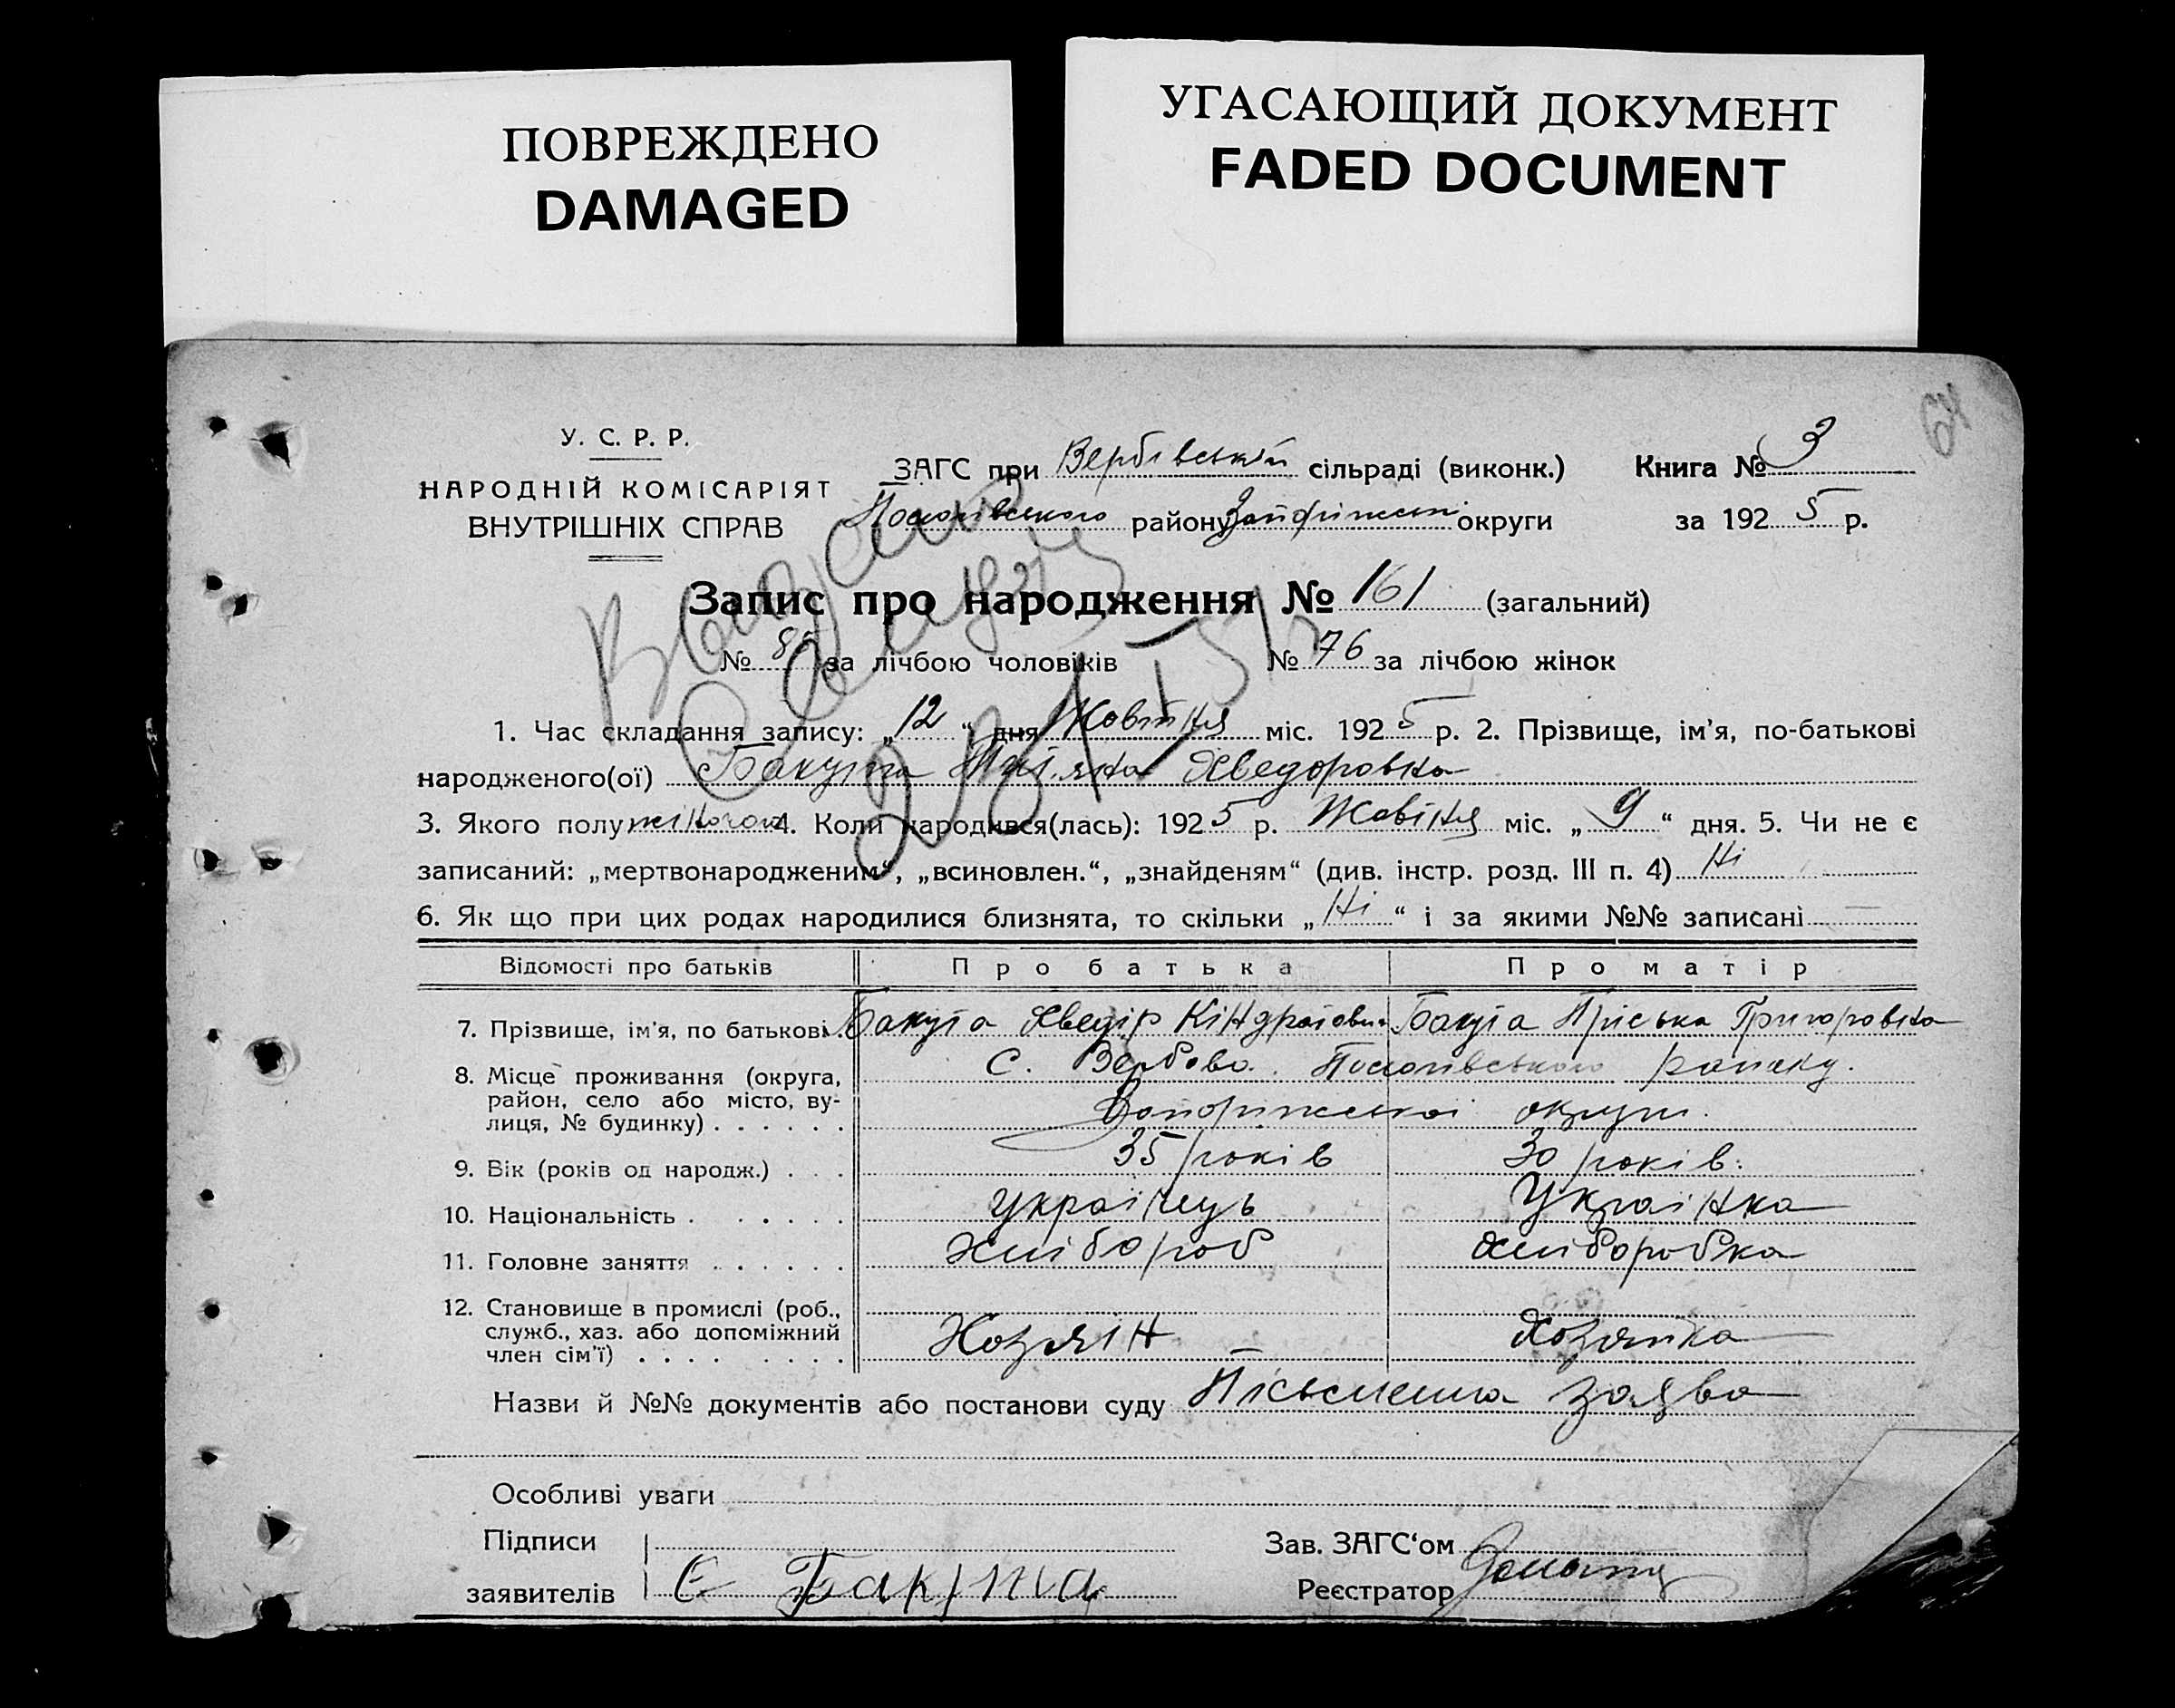 ПОВРЕЖДЕНО
DAMAGED
УГАСАЮЩИЙ ДОКУМЕНТ
FADED DOCUMENT
64
У. С. Р. Р.
НАРОДНІЙ КОМІСАРІЯТ
ВНУТРІШНІХ СПРАВ
ЗАГС при Вербівській сільраді (виконк.) Книга № 3
Пологівського району Запоріжськ округи за 1925 р.
Запис про народження № 161 (загальний)
№ 85 за лічбою чоловіків № 76 за лічбою жінок
1. Час складання запису: „12“ дня Жовтня міс. 1925 р. 2. Прізвище, ім'я, по-батькові
народженого(ої) Бакута Тятяна Хведоровна
3. Якого полу жіночого 4. Коли народився(лась): 1925 р. Жовтня міс. „9“ дня. 5. Чи не є
записаний: „мертвонародженим“, „всиновлен.“, „знайденям“ (див. інстр. розд. III п. 4) Ні
6. Як що при цих родах народилися близнята, то скільки „Ні“ і за якими №№ записані —
Відомості про батьків Про батька Про матір
7. Прізвище, ім'я, по батькові Бакута Хведір Кіндратович Бакута Пріська Григоровна
8. Місце проживання (округа, район, село або місто, вулиця, № будинку) . . . . . . С. Вербово Пологівського району.
Запоріжської округи.
9. Вік (років од народж.) . . . 35 років 30 років.
10. Національність . . . . . . Українець Українка
11. Головне заняття . . . . . . Хлібороб Хлiборобка
12. Становище в промислі (роб., служб., хаз. або допоміжний член сім'ї) . . . . . . . . Хозяін Хозяйка
Назви й №№ документів або постанови суду Пісьменна заява
Особливі уваги
Підписи
заявителів Є Бакута
Зав. ЗАГС'ом
Реєстратор